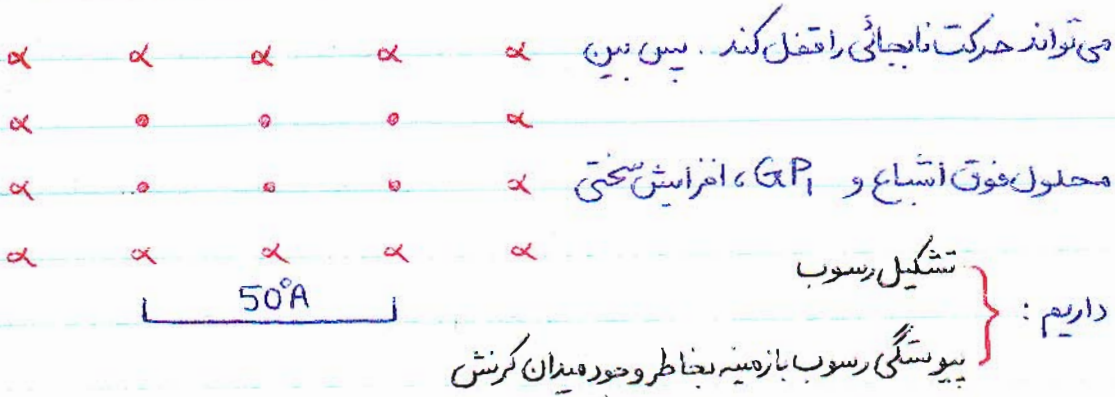 می‌تواند حرکت نابجائی را قفل کند. پس بین
α α α α α
α ∘ ∘ ∘ α
محلول فوق اشباع و GP₁، افزایش سختی
α ∘ ∘ ∘ α
α α α α α
50°A
داریم :
تشکیل رسوب
پیوستگی رسوب با زمینه بخاطر وجود میدان کرنش